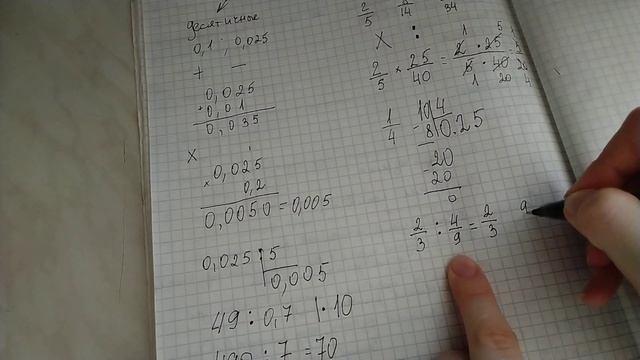 десятичные
0,1 ; 0,025
+ −
0,025
+ 0,01
0,035
x
0,025
x 0,2
0,0050 = 0,005
0,025 | 5
0,005
49 : 0,7 | · 10
490 : 7 = 70
2/5 14 34
x :
2/5 x 25/40 = 2 · 25 / 5 · 40
1/4 10 | 4
− 8 | 0.25
20
− 20
0
2/3 : 4/9 = 2/3 9